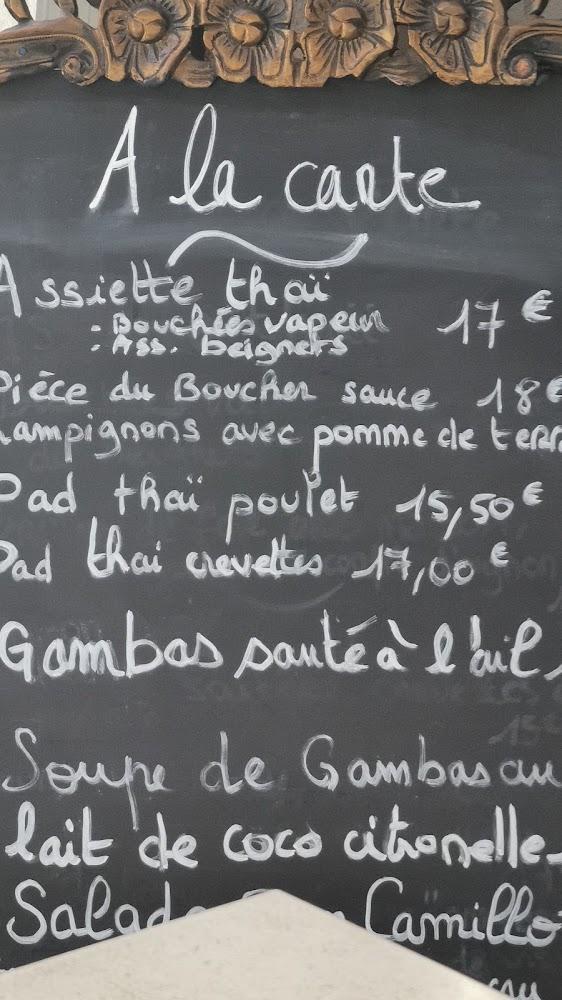 A la carte
Assiette thaï
- Bouchées vapeur 17 €
- Ass. beignets
Pièce du Boucher sauce 18€
hampignons avec pomme de terr
Pad thaï poulet 15,50€
Pad thai crevettes 17,00 €
Gambas sauté à l'ail
Soupe de Gambas au
lait de coco citronelle
Salade Camillo
cru